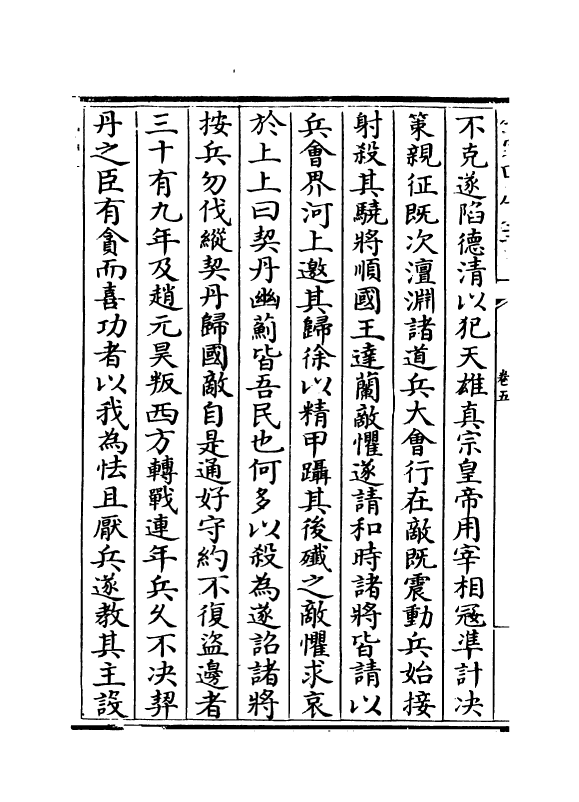 不克遂陷德清以犯天雄真宗皇帝用宰相冦凖計决
策親征既次澶淵諸道兵大會行在敵既震動兵始接
射殺其驍將順國王達蘭敵懼遂請和時諸將皆請以
兵會界河上邀其歸徐以精甲躡其後殱之敵懼求哀
於上上曰契丹幽薊皆吾民也何多以殺為遂詔諸將
按兵勿伐縱契丹歸國敵自是通好守約不復盗邊者
三十有九年及趙元昊叛西方轉戰連年兵乆不决契
丹之臣有貪而喜功者以我為怯且厭兵遂教其主設
卷五